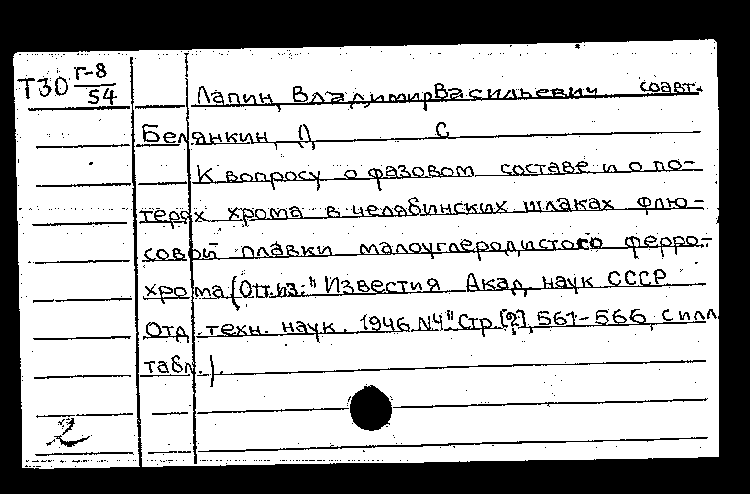 Т30 Г-8/54
Лапин, Владимир Васильевич соавт.
Белянкин, С
К вопросу о фазовом составе и о по-
терях хрома в челябинских шлаках флю-
совой плавки малоуглеродистого ферро-
хрома (Отт.из:" Известия Акад. наук СССР
Отд. техн. наук. 1946 N4" Стр. [2], 561-566, с илл
табл.).
2